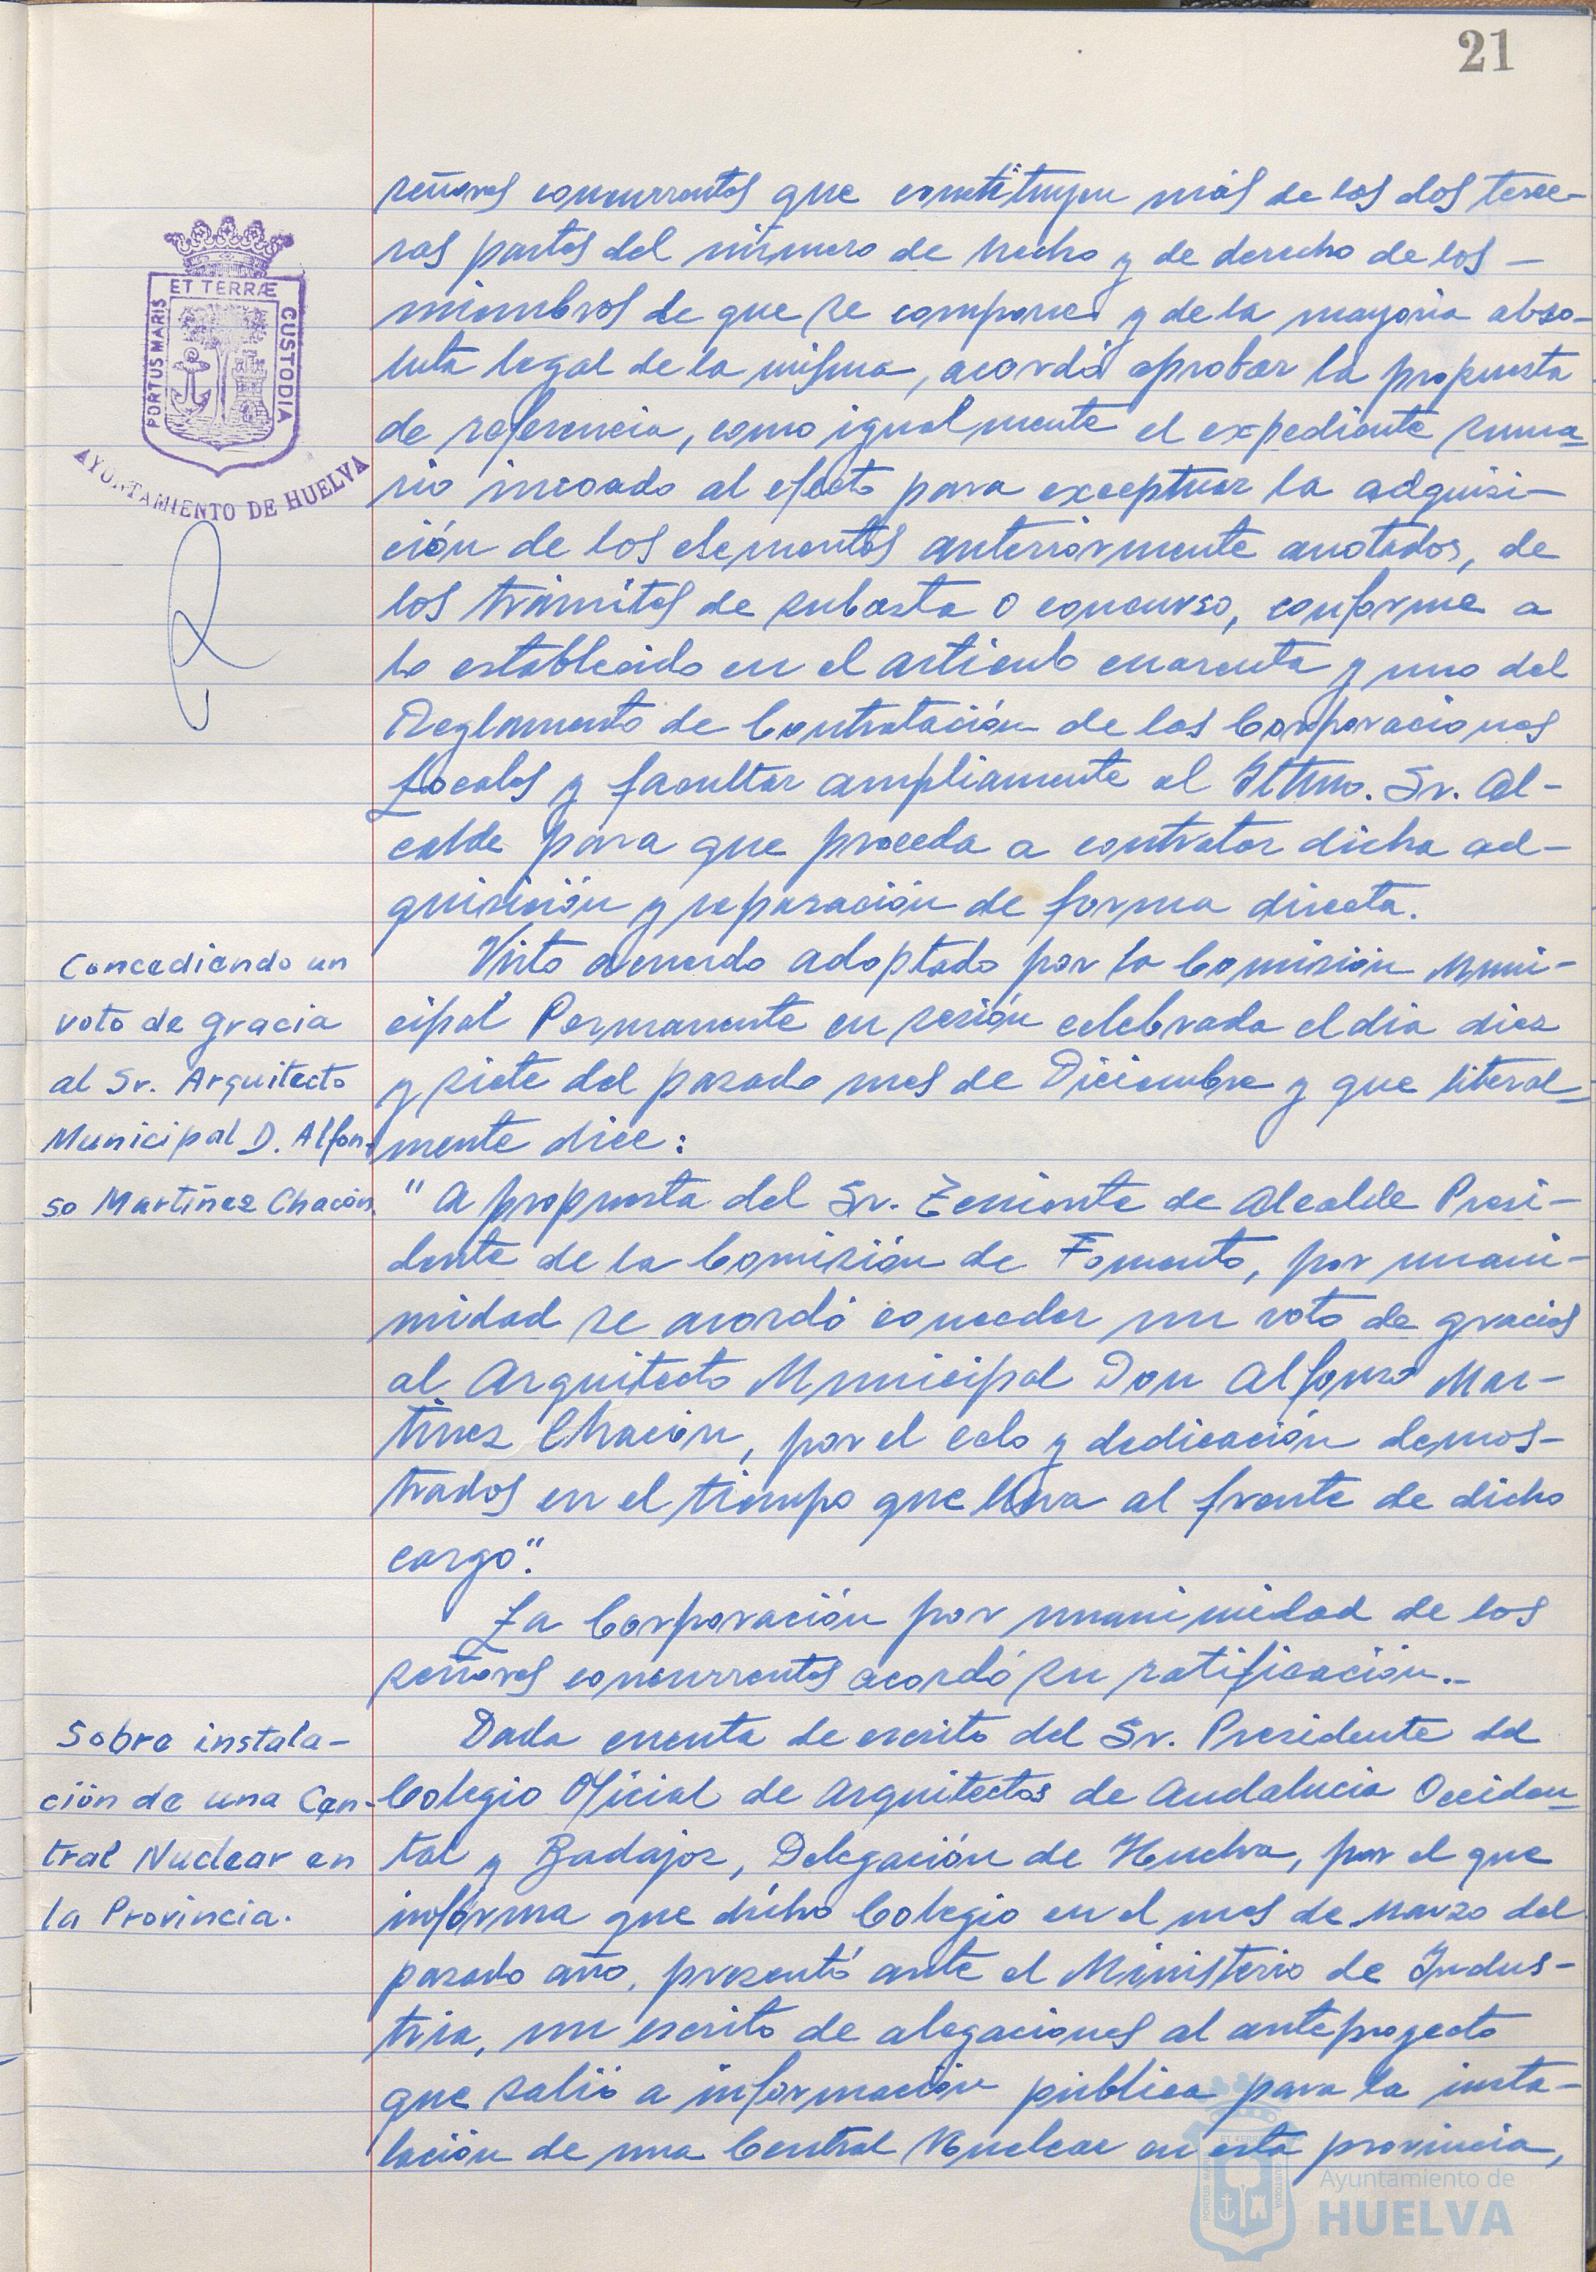 21
señores concurrentes que constituyen más de las dos terce-
ras partes del número de hecho y de derecho de los -
miembros de que se compone y de la mayoria abso-
luta legal de la misma, acordó aprobar la propuesta
de referencia, como igualmente el expediente suma-
rio incoado al efecto para exceptuar la adquisi-
ción de los elementos anteriormente anotados, de
los trámites de subasta o concurso, conforme a
lo establecido en el articulo cuarenta y uno del
Reglamento de Contratación de las Corporaciones
Locales y facultar ampliamente al Iltmo. Sr. Al-
calde para que proceda a contratar dicha ad-
quisición y reparación de forma directa.
ET TERRÆ
PORTUS MARIS
CUSTODIA
AYUNTAMIENTO DE HUELVA
Concediendo un
voto de gracia
al Sr. Arquitecto
Municipal D. Alfon-
so Martínez Chacón.
Visto acuerdo adoptado por la Comisión Muni-
cipal Permanente en sesión celebrada el dia diez
y siete del pasado mes de Diciembre y que literal-
mente dice:
" A propuesta del Sr. Teniente de Alcalde Presi-
dente de la Comisión de Fomento, por unani-
midad se acordó conceder un voto de gracias
al Arquitecto Municipal Don Alfonso Mar-
tinez Chacón, por el celo y dedicación demos-
trados en el tiempo que lleva al frente de dicho
cargo".
La Corporación por unanimidad de los
señores concurrentes acordó su ratificación.-
Sobre instala-
ción de una Cen-
tral Nuclear en
la Provincia.
Dada cuenta de escrito del Sr. Presidente del
Colegio Oficial de Arquitectos de Andalucia Occiden-
tal y Badajoz, Delegación de Huelva, por el que
informa que dicho Colegio en el mes de marzo del
pasado año, presentó ante el Ministerio de Indus-
tria, un escrito de alegaciones al anteproyecto
que salió a información pública para la insta-
lación de una Central Nuclear en esta provincia,
Ayuntamiento de
HUELVA